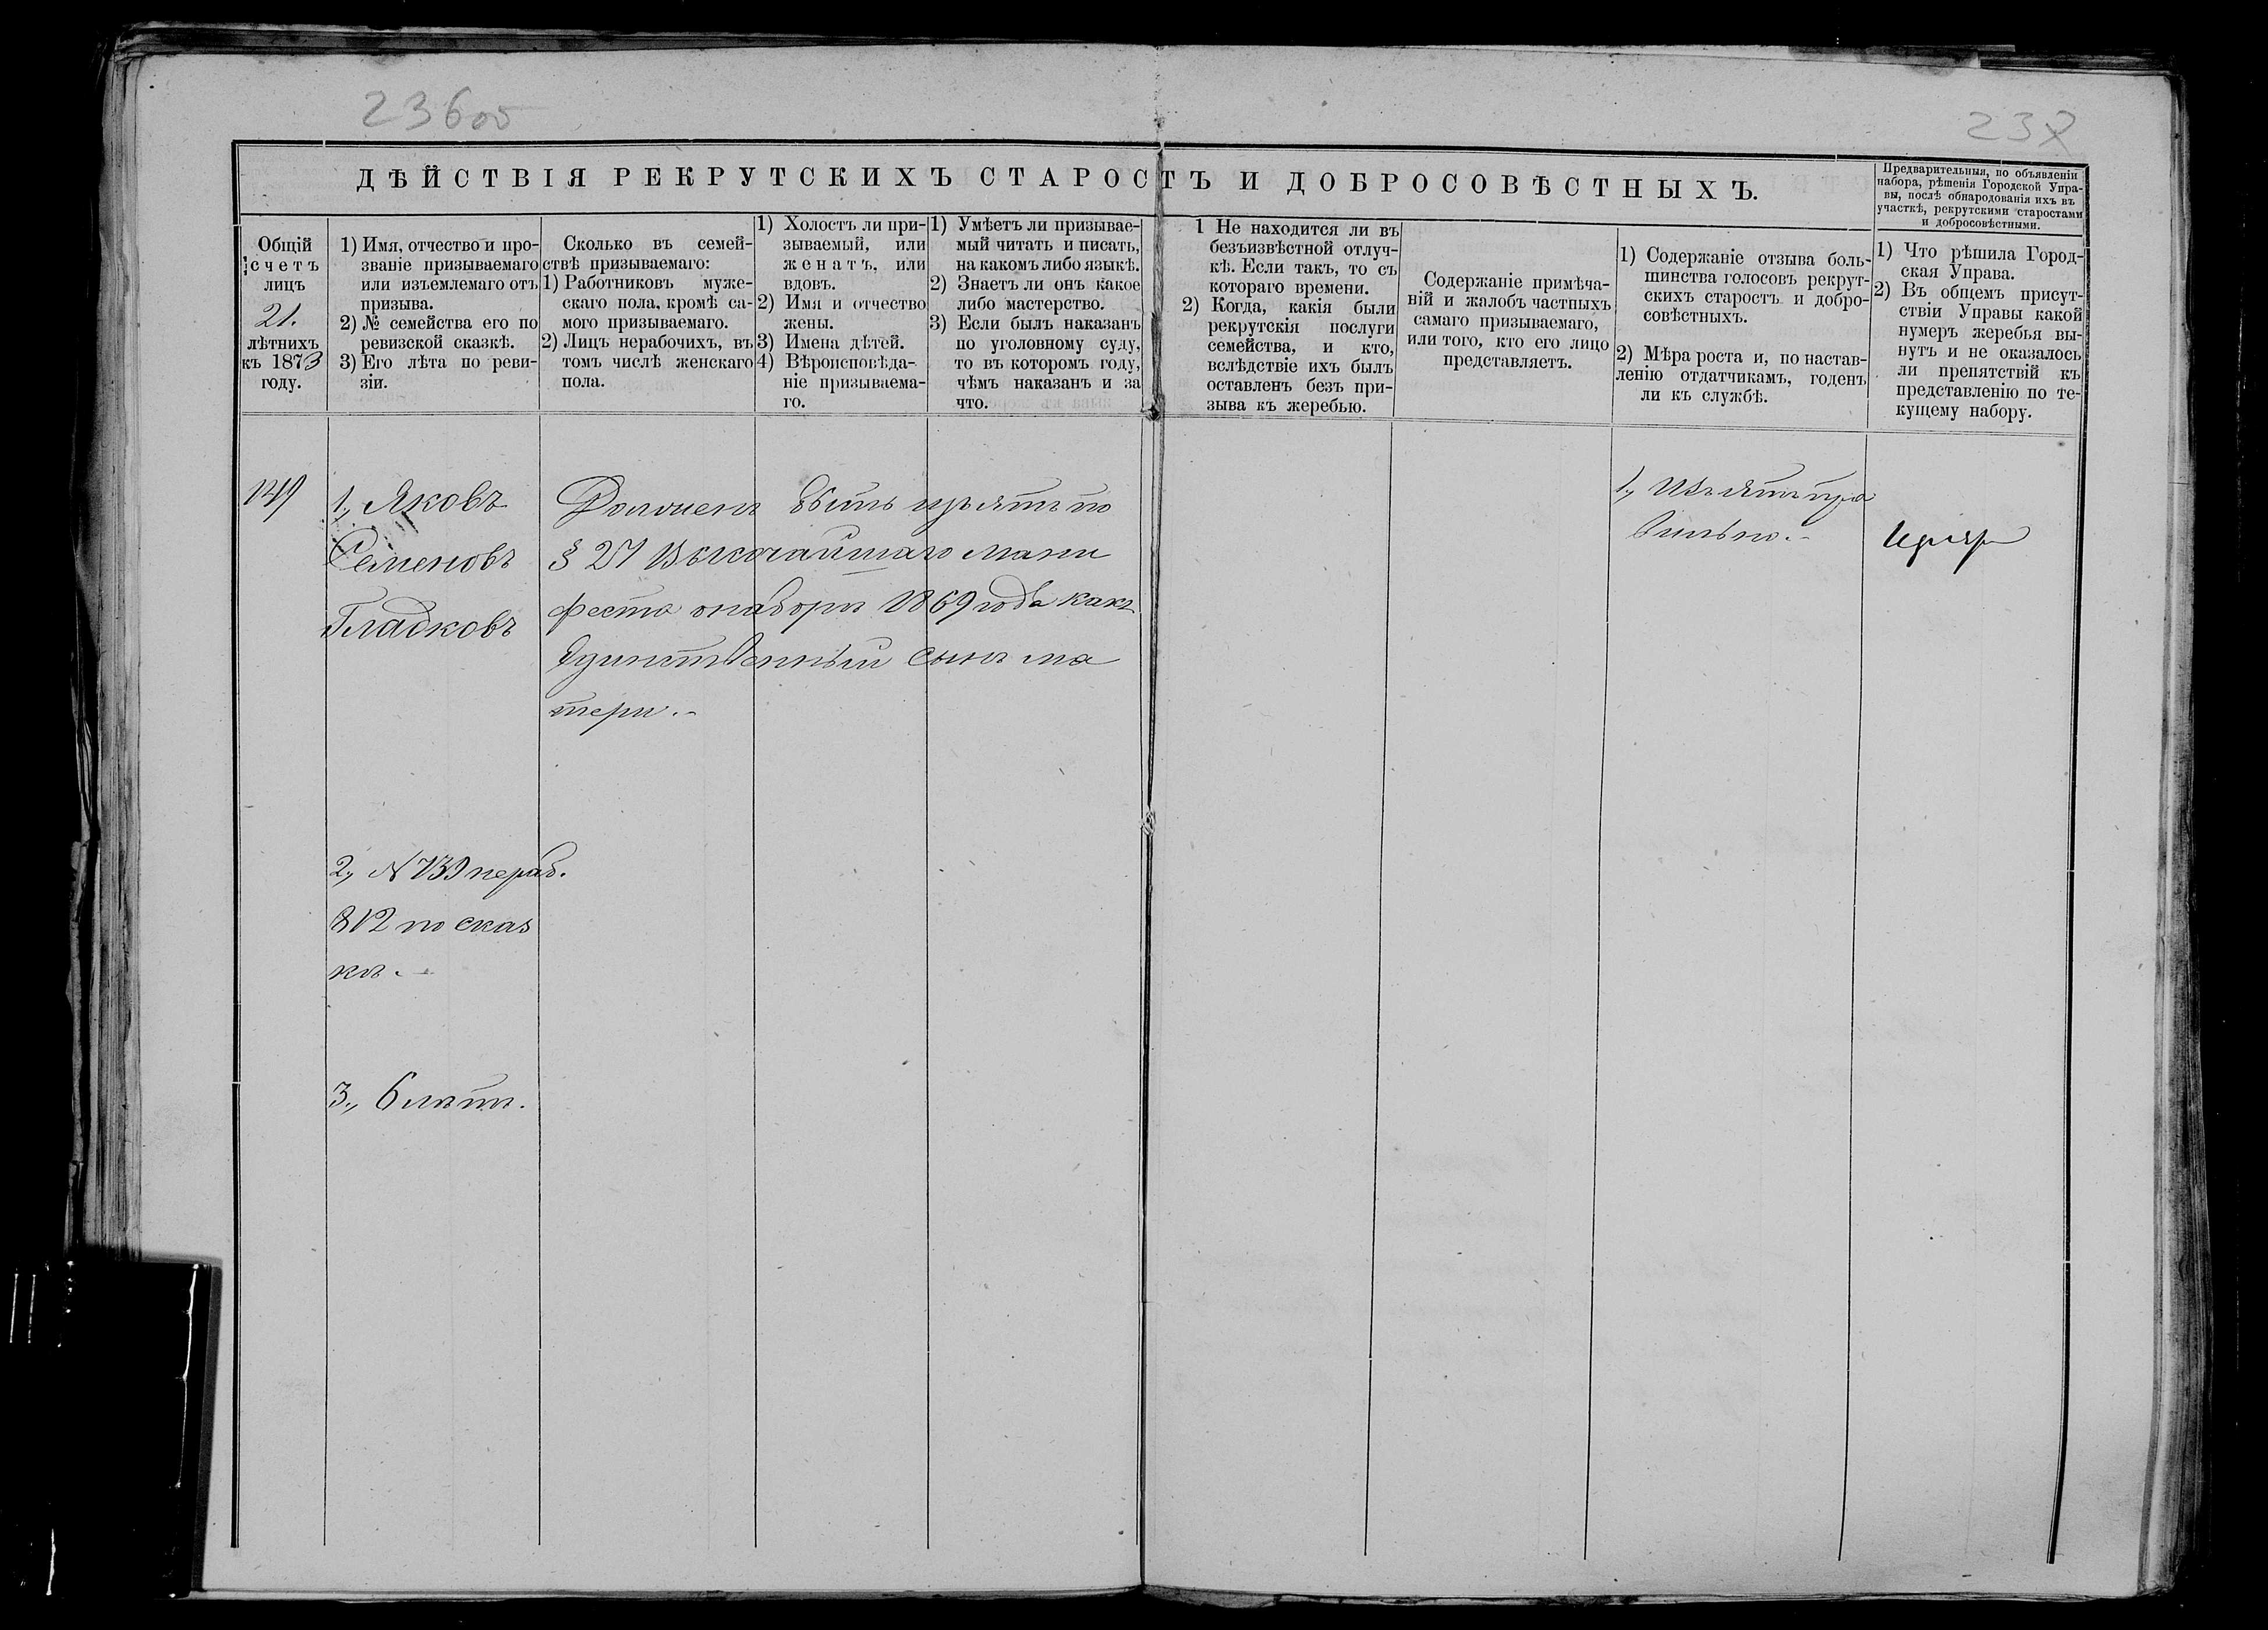 236об
237
ДѢЙСТВІЯ РЕКРУТСКИХЪ СТАРОСТЪ И ДОБРОСОВѢСТНЫХЪ.
Предварительныя, по объявленіи
набора, рѣшенія Городской Упра-
вы, послѣ обнародованія ихъ въ
участкѣ, рекрутскими старостами
и добросовѣстными.
Общій
счетъ
лицъ
21.
лѣтнихъ
къ 1873
году.
1) Имя, отчество и про-
званіе призываемаго
или изъемлемаго отъ
призыва.
2) № семейства его по
ревизской сказкѣ.
3) Его лѣта по реви-
зіи.
Сколько въ семей-
ствѣ призываемаго:
1) Работниковъ муже-
скаго пола, кромѣ са-
мого призываемаго.
2) Лицъ нерабочихъ, въ
томъ числѣ женскаго
пола.
1) Холостъ ли при-
зываемый, или
женатъ, или
вдовъ.
2) Имя и отчество
жены.
3) Имена дѣтей.
4) Вѣроисповѣда-
ніе призываема-
го.
1) Умѣетъ ли призывае-
мый читать и писать,
на какомъ либо языкѣ.
2) Знаетъ ли онъ какое
либо мастерство.
3) Если былъ наказанъ
по уголовному суду,
то въ которомъ году,
чѣмъ наказанъ и за
что.
1 Не находится ли въ
безъизвѣстной отлуч-
кѣ. Если такъ, то съ
котораго времени.
2) Когда, какія были
рекрутскія послуги
семейства, и кто,
вслѣдствіе ихъ былъ
оставленъ безъ при-
зыва къ жеребью.
Содержаніе примѣча-
ній и жалобъ частныхъ
самаго призываемаго,
или того, кто его лицо
представляетъ.
1) Содержаніе отзыва боль-
шинства голосовъ рекрут-
скихъ старостъ и добро-
совѣстныхъ.
2) Мѣра роста и, по настав-
ленію отдатчикамъ, годенъ
ли къ службѣ.
1) Что рѣшила Город-
ская Управа.
2) Въ общемъ присут-
ствіи Управы какой
нумеръ жеребья вы-
нутъ и не оказалось
ли препятствій къ
представленію по те-
кущему набору.
149
1., Яковъ
Семеновъ
Гладковъ
Долженъ быть изъятъ по
§ 27 Высочайшаго Мани
феста о наборѣ 1869 года какъ
единственный сынъ ма
тери.-
1., Изъятъ пра
вильно.-
2., N 739 по раб.
812 по сказ
кѣ.-
3., 6 лѣтъ.